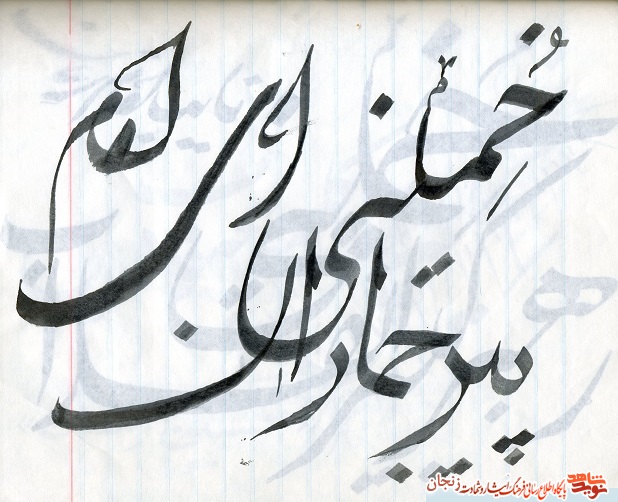 خُمِینی ای امام
پیر جماران
نوید شاهد
پایگاه اطلاع رسانی فرهنگ ایثار و شهادت زنجان